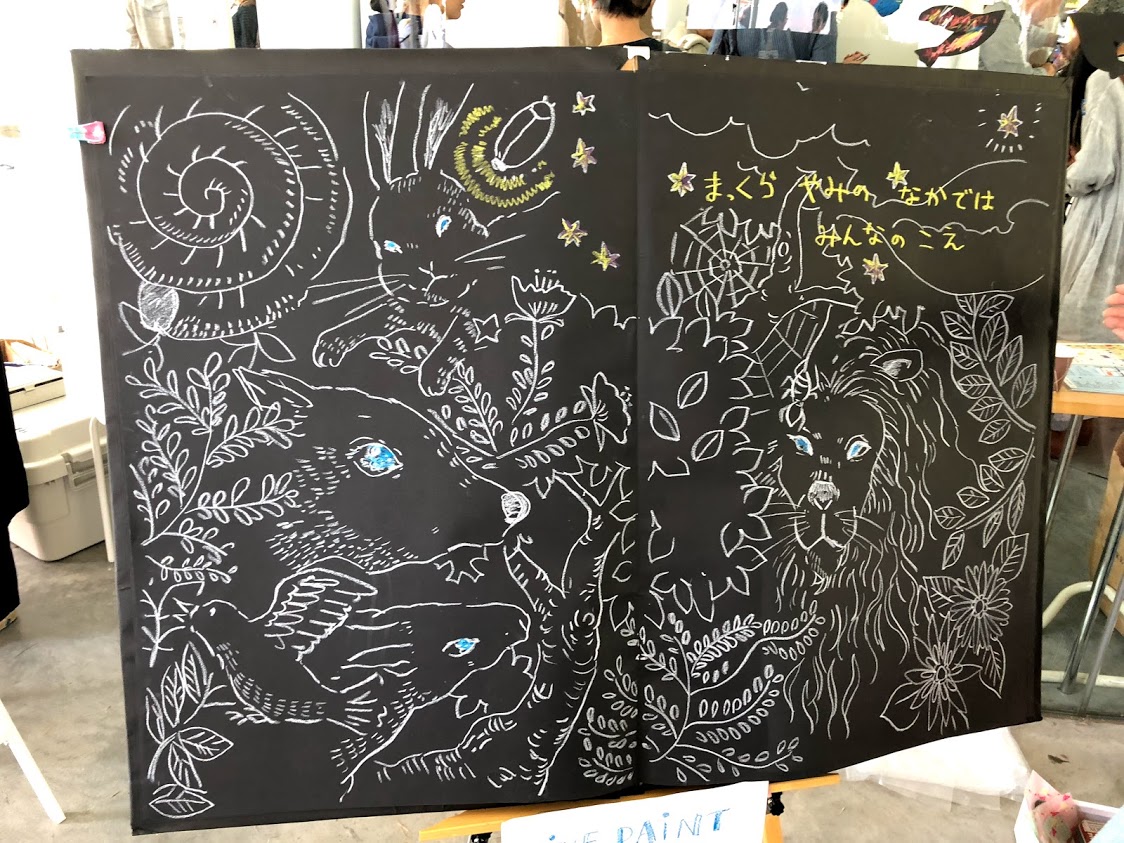 まっくら やみの なかでは
みんなの こえ
PAINT